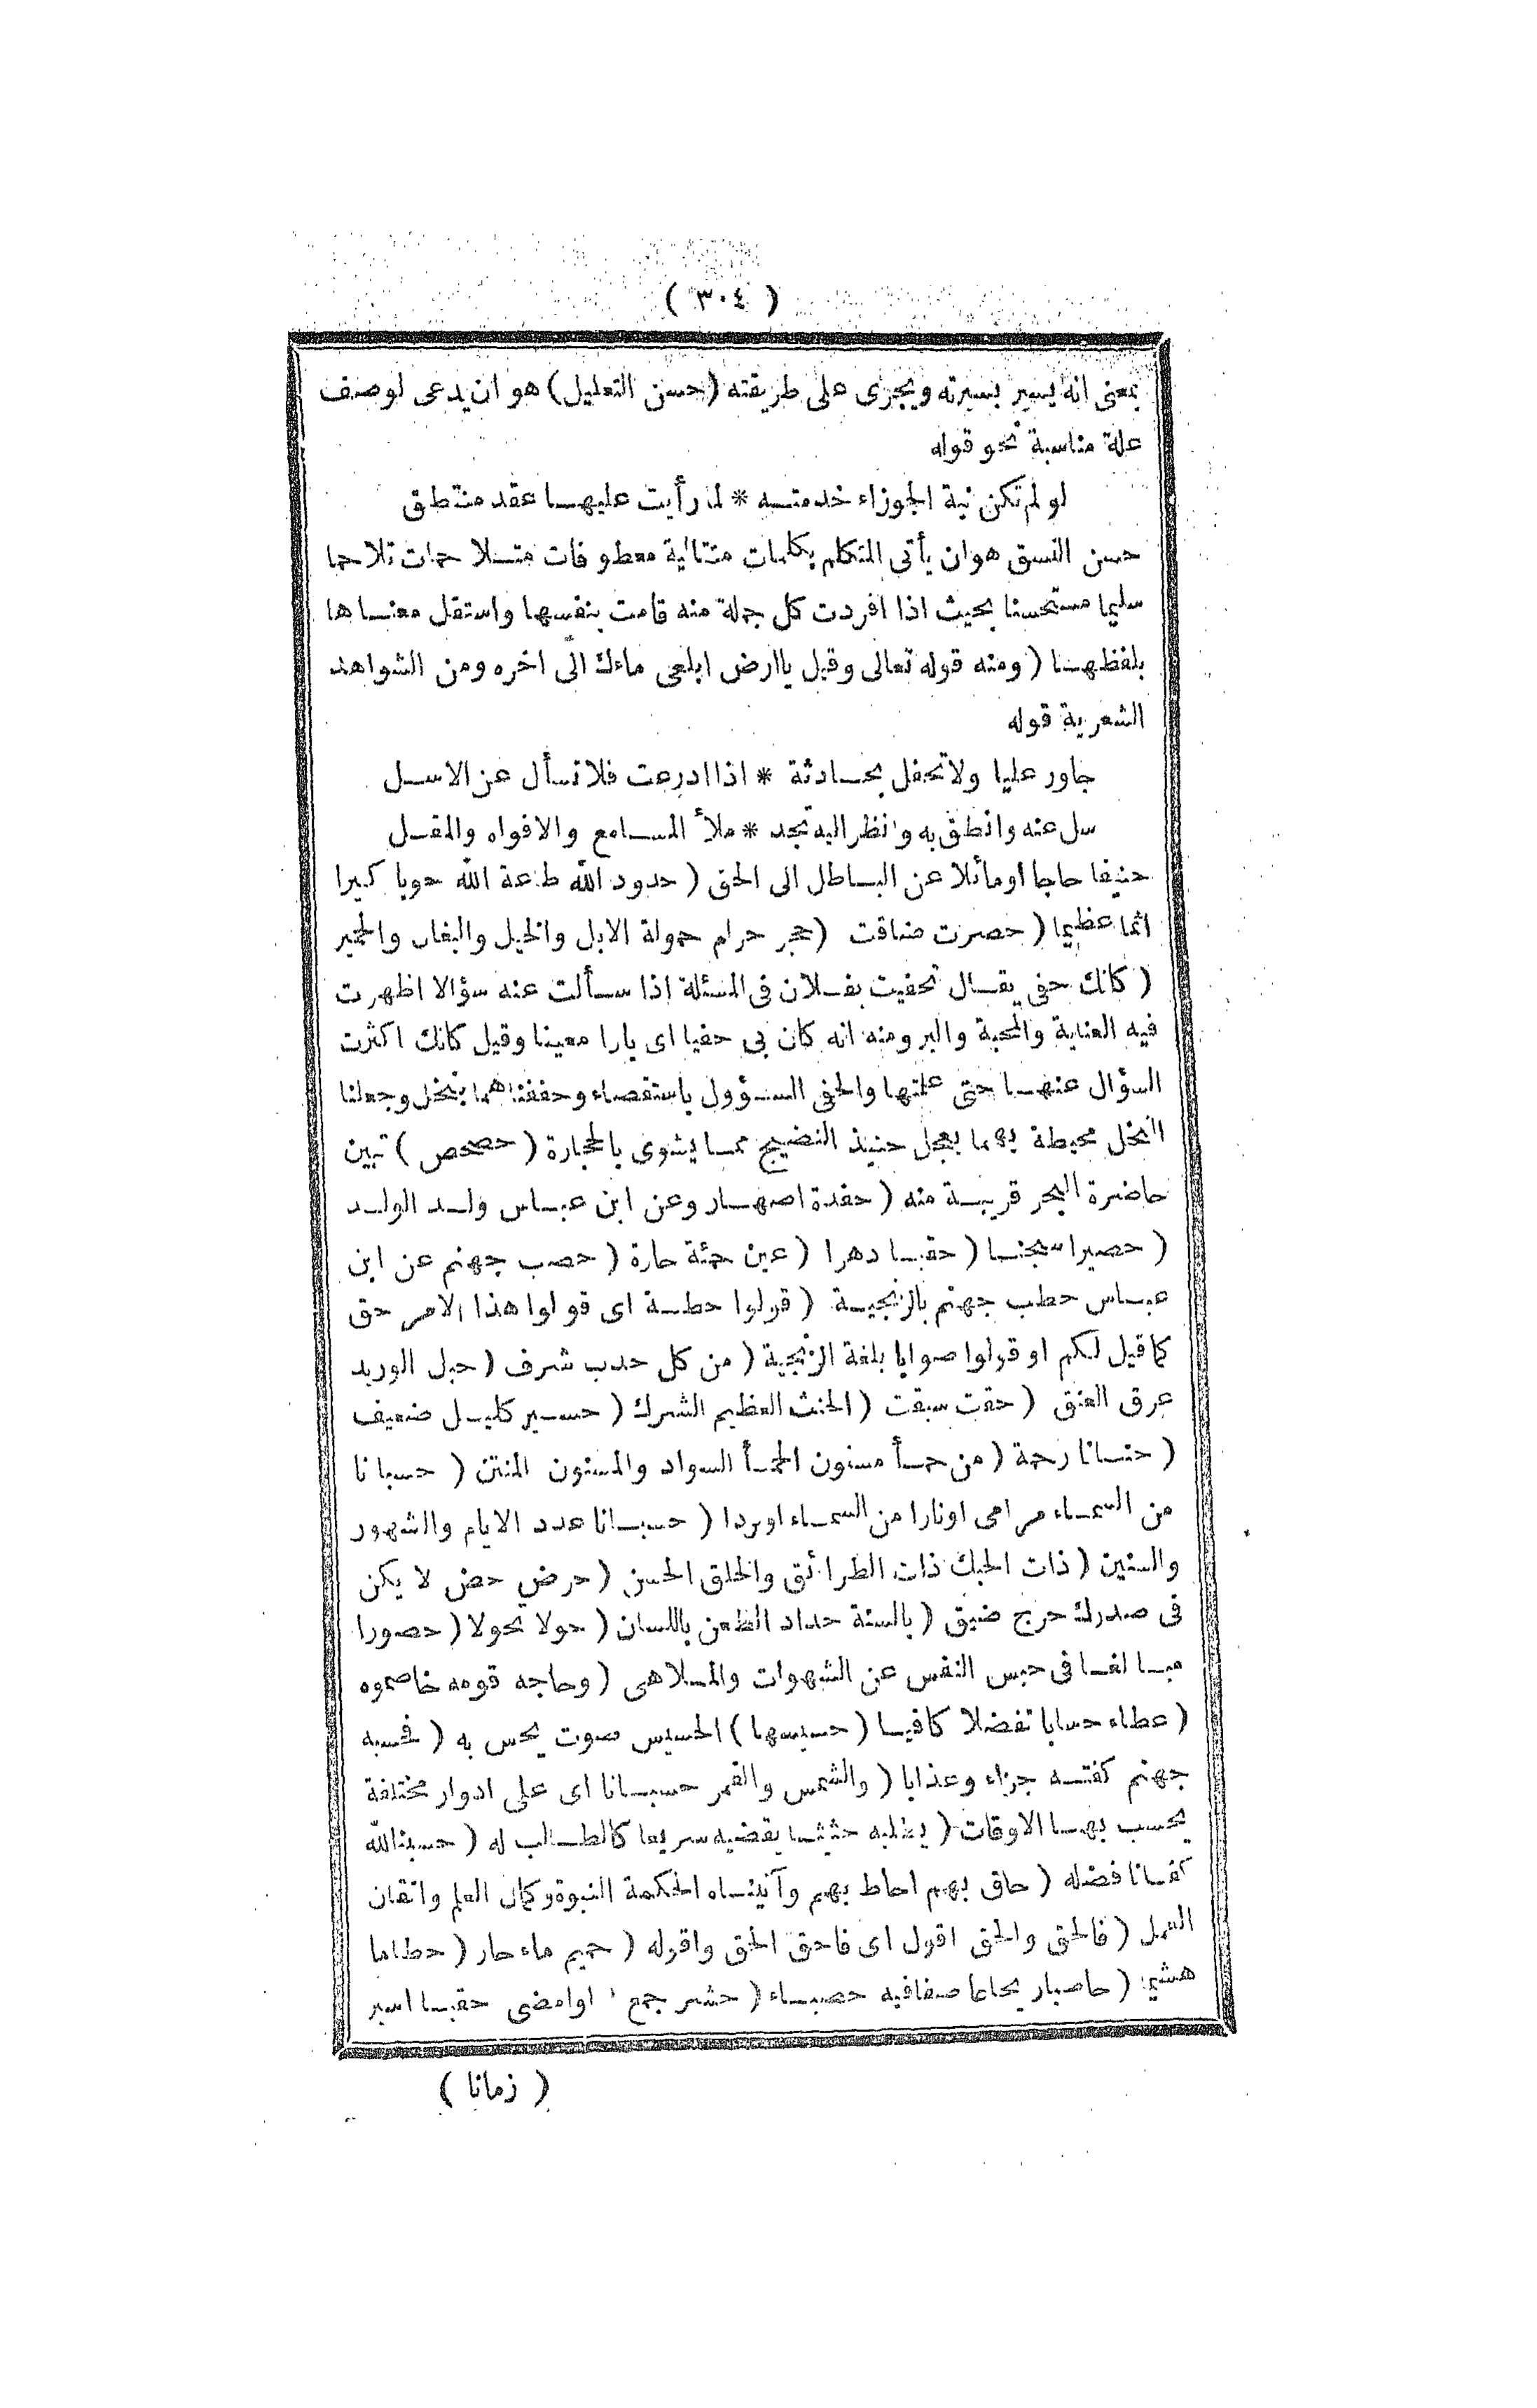 ( ٣٠٤ )
بمعنى انه يسير بسيرته ويجرى على طريقته (حسن التعليل) هو ان يدعى لوصف
علة مناسبة نحو قوله
لو لم تكن نية الجوزاء خدمتــه * لما رأيت عليهــا عقد منتطق
حسن النسق هوان يأتى المتكلم بكلمات متتالية معطوفات متــلاحمات تلاحما
سليما مستحسنا بحيث اذا افردت كل جملة منه قامت بنفسها واستقل معنــاها
بلفظهــا ( ومنه قوله تعالى وقيل ياارض ابلعى ماءك الى اخره ومن الشواهد
الشعرية قوله
جاور عليا ولا تحفل بحــادثة * اذا ادرعت فلا تسأل عن الاســل
سل عنه وانطق به وانظر اليه تجد * ملأ المســامع والافواه والمقــل
حنيفا حاجا أومائلا عن البــاطل الى الحق ( حدود الله طاعة الله حوبا كبيرا
اثما عظيما ( حصرت ضاقت ( حجر حرام حمولة الابل والخيل والبغال والحمير
( كانك حفى يقــال تحفيت بفــلان فى المسئلة اذا ســألت عنه سؤالا اظهرت
فيه العناية والمحبة والبر ومنه انه كان بى حفيا اى بارا معينا وقيل كانك اكثرت
السؤال عنهــا حتى علمتها والحفى الســؤول باستقصاء وحففناهما بنخل وجعلنا
النخل محيطة بهما بعجل حنيذ النضيج ممــا يشوى بالحجارة ( حصحص ) تبين
حاضرة البحر قريبــة منه ( حفدة اصهــار وعن ابن عبــاس ولــد الولــد
( حصيرا سجنــا ( حقبــا دهرا ( عين حمئة حارة ( حصب جهنم عن ابن
عبــاس حطب جهنم بالزنجيــة ( قولوا حطــة اى قولوا هذا الامر حق
كما قيل لكم او قولوا صوابا بلغة الزنجية ( من كل حدب شرف ( حبل الوريد
عرق العنق ( حقت سبقت ( الحنث العظيم الشرك ( حســير كليــل ضعيف
( حنــانا رحمة ( من حمــأ مسنون الحمــأ السواد والمسنون المنتن ( حسبانا
من السمــاء مرامى اونارا من السمــاء اوبردا ( حســبانا عدد الايام والشهور
والسنين ( ذات الحبك ذات الطرائق والخلق الحسن ( حرض حض لا يكن
فى صدرك حرج ضيق ( بالسنة حداد الطعن باللسان ( حولا تحولا ( حصورا
مبــا لغــا فى حبس النفس عن الشهوات والمــلاهى ( وحاجه قومه خاصموه
( عطاء حسابا تفضلا كافيــا ( حسيسها ) الحسيس صوت يحس به ( فحسبه
جهنم كفتــه جزاء وعذابا ( والشمس والقمر حسبــانا اى على ادوار مختلفة
يحسب بهــا الاوقات ( يطلبه حثيثــا يقضيه سريعا كالطــالب له ( حسبنا الله
كفــانا فضله ( حاق بهم احاط بهم وآتينــاه الحكمة النبوة وكمال العلم واتقان
العمل ( فالحق والحق اقول اى فاحق الحق واقوله ( حميم ماء حار ( حطاما
هشيما ( حاصبا حصبــاء ( حشر جمع اوامضى حقبــا اسير
( زمانا )